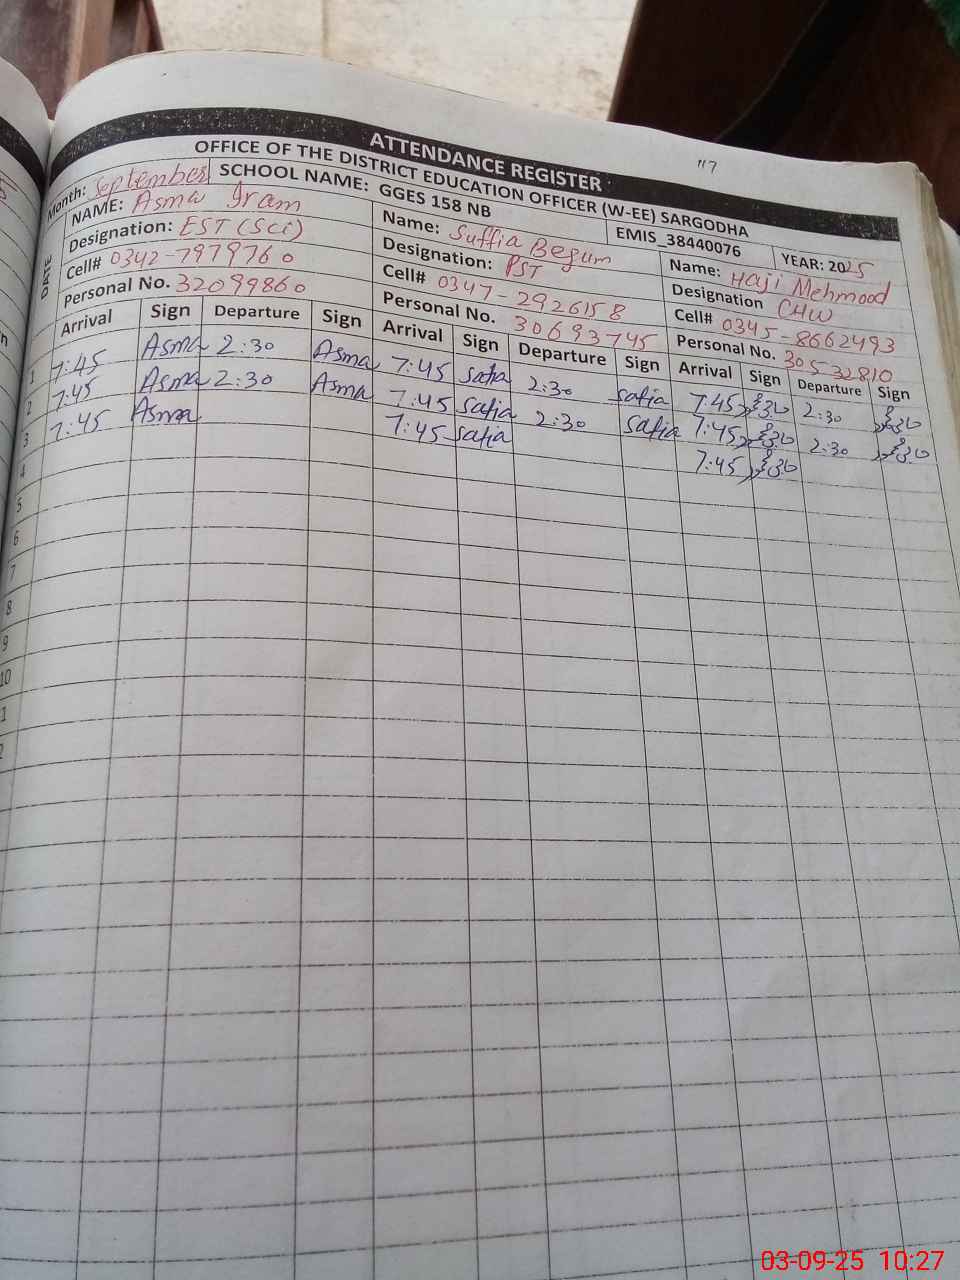 "7
ATTENDANCE REGISTER
OFFICE OF THE DISTRICT EDUCATION OFFICER (W-EE) SARGODHA
Month: September SCHOOL NAME: GGES 158 NB EMIS_38440076 YEAR: 2025
DATE
NAME: Asma Iram Name: Suffia Begum Name: Haji Mehmood
Designation: EST (Sci) Designation: PST Designation CHW
Cell# 0342-7979760 Cell# 0347-2926158 Cell# 0345-8662493
Personal No. 32099860 Personal No. 30693745 Personal No. 30532810
Arrival Sign Departure Sign Arrival Sign Departure Sign Arrival Sign Departure Sign
1 7:45 Asma 2:30 Asma 7:45 safia 2:30 safia 7:45 2:30
2 7:45 Asma 2:30 Asma 7:45 safia 2:30 safia 7:45 2:30
3 7:45 Asma 7:45 safia 7:45
4
5
6
7
8
9
10
1
2
03-09-25 10:27